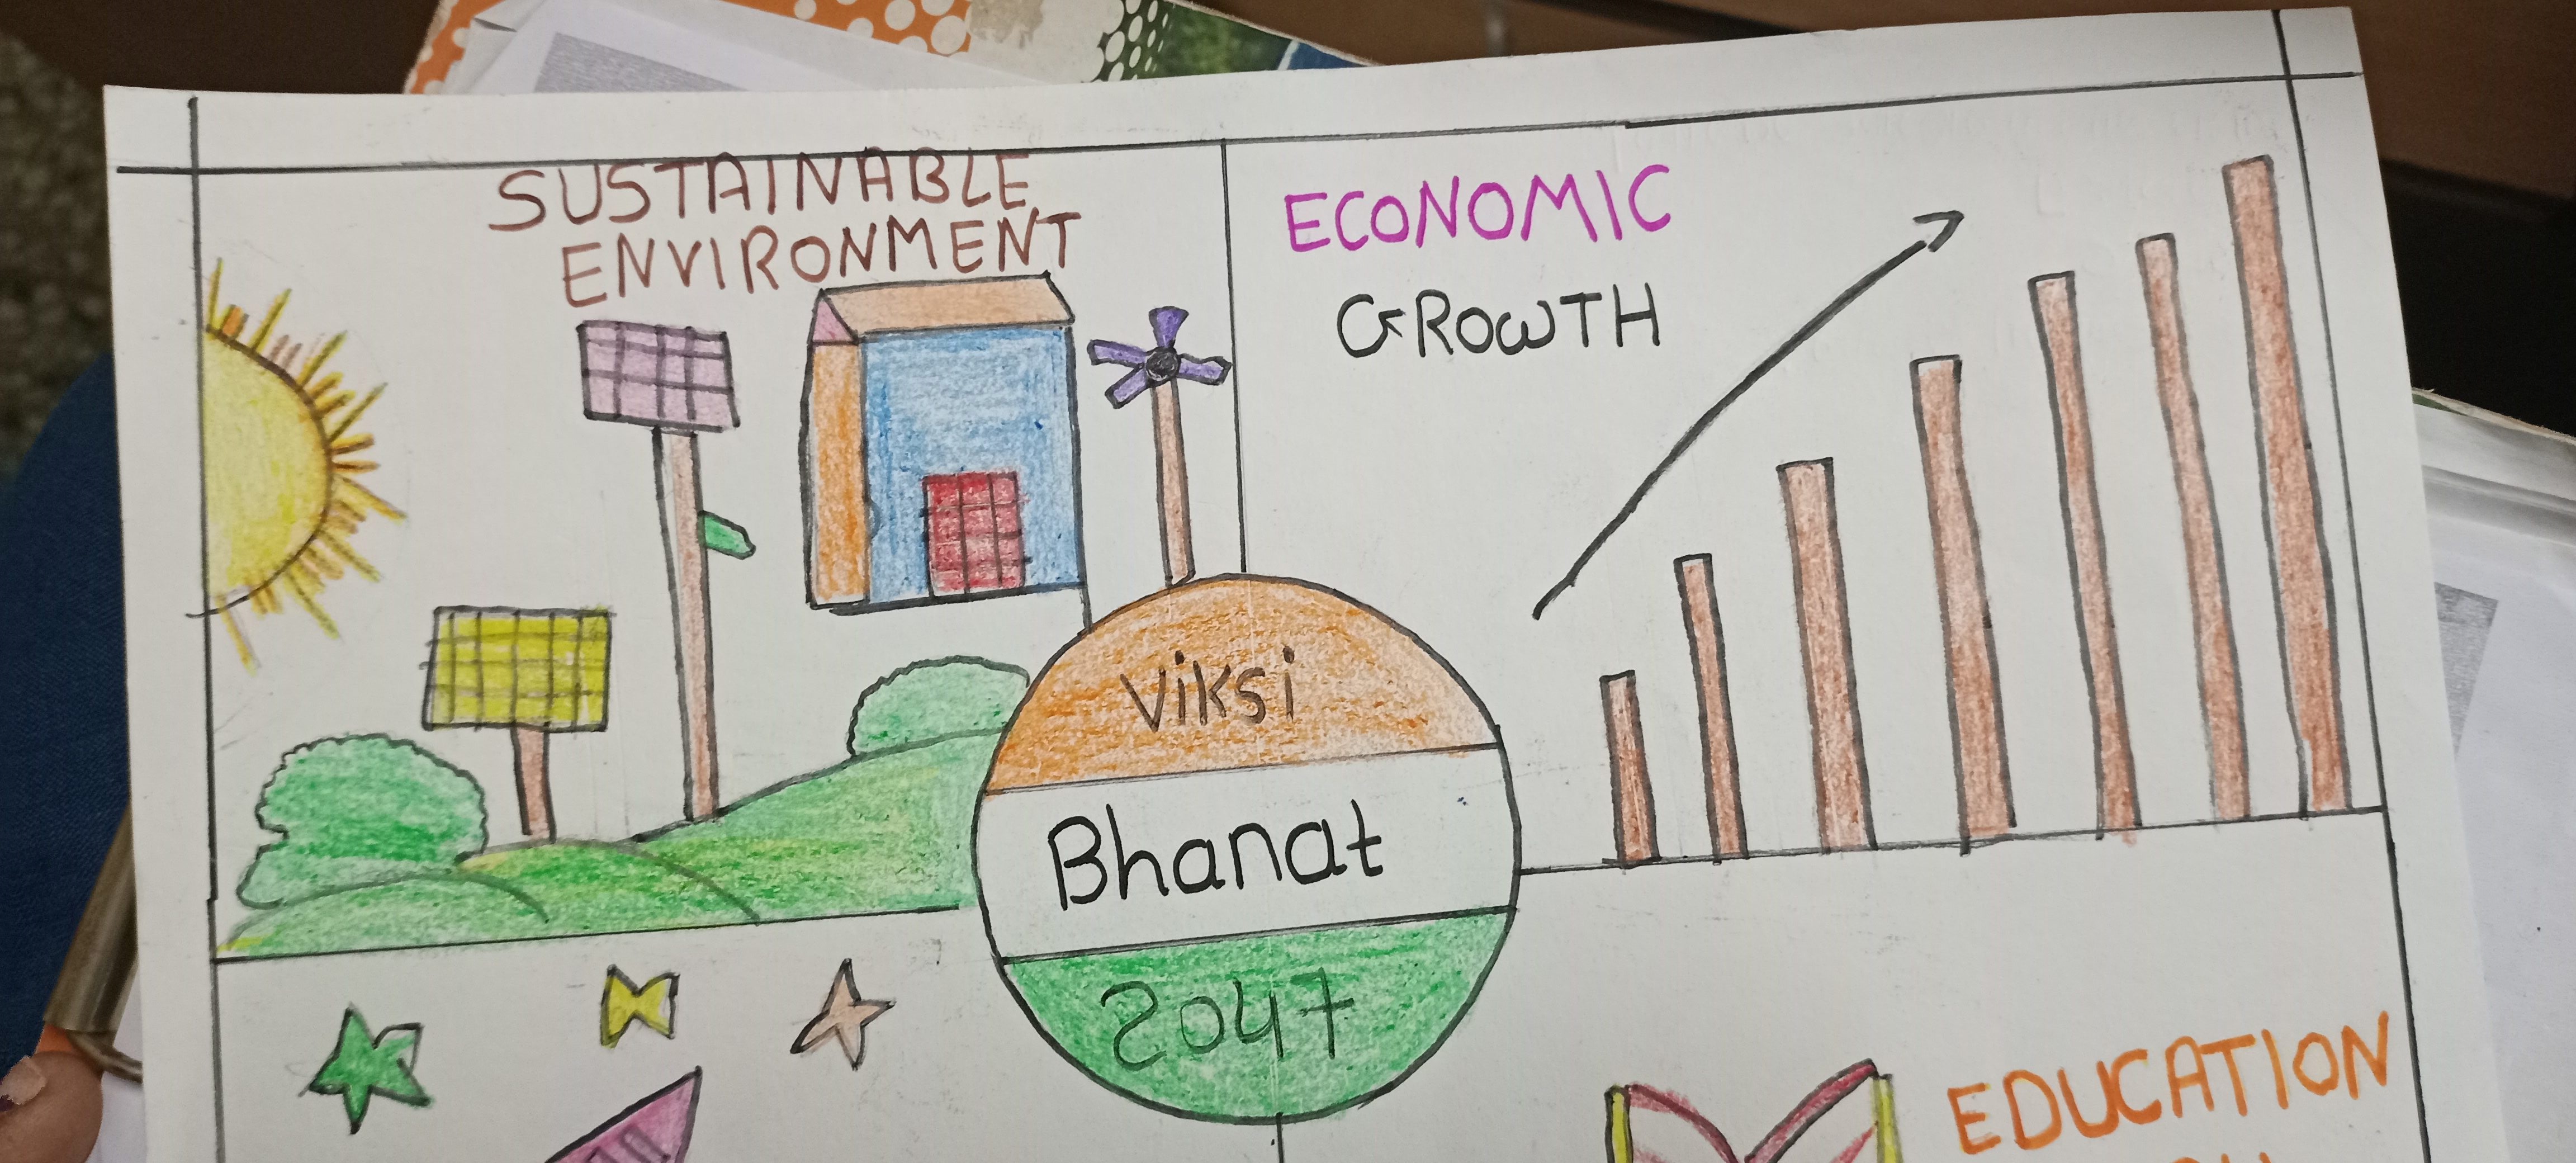 SUSTAINABLE
ENVIRONMENT
ECONOMIC
GROWTH
Viksi
Bhanat
2047
EDUCATION